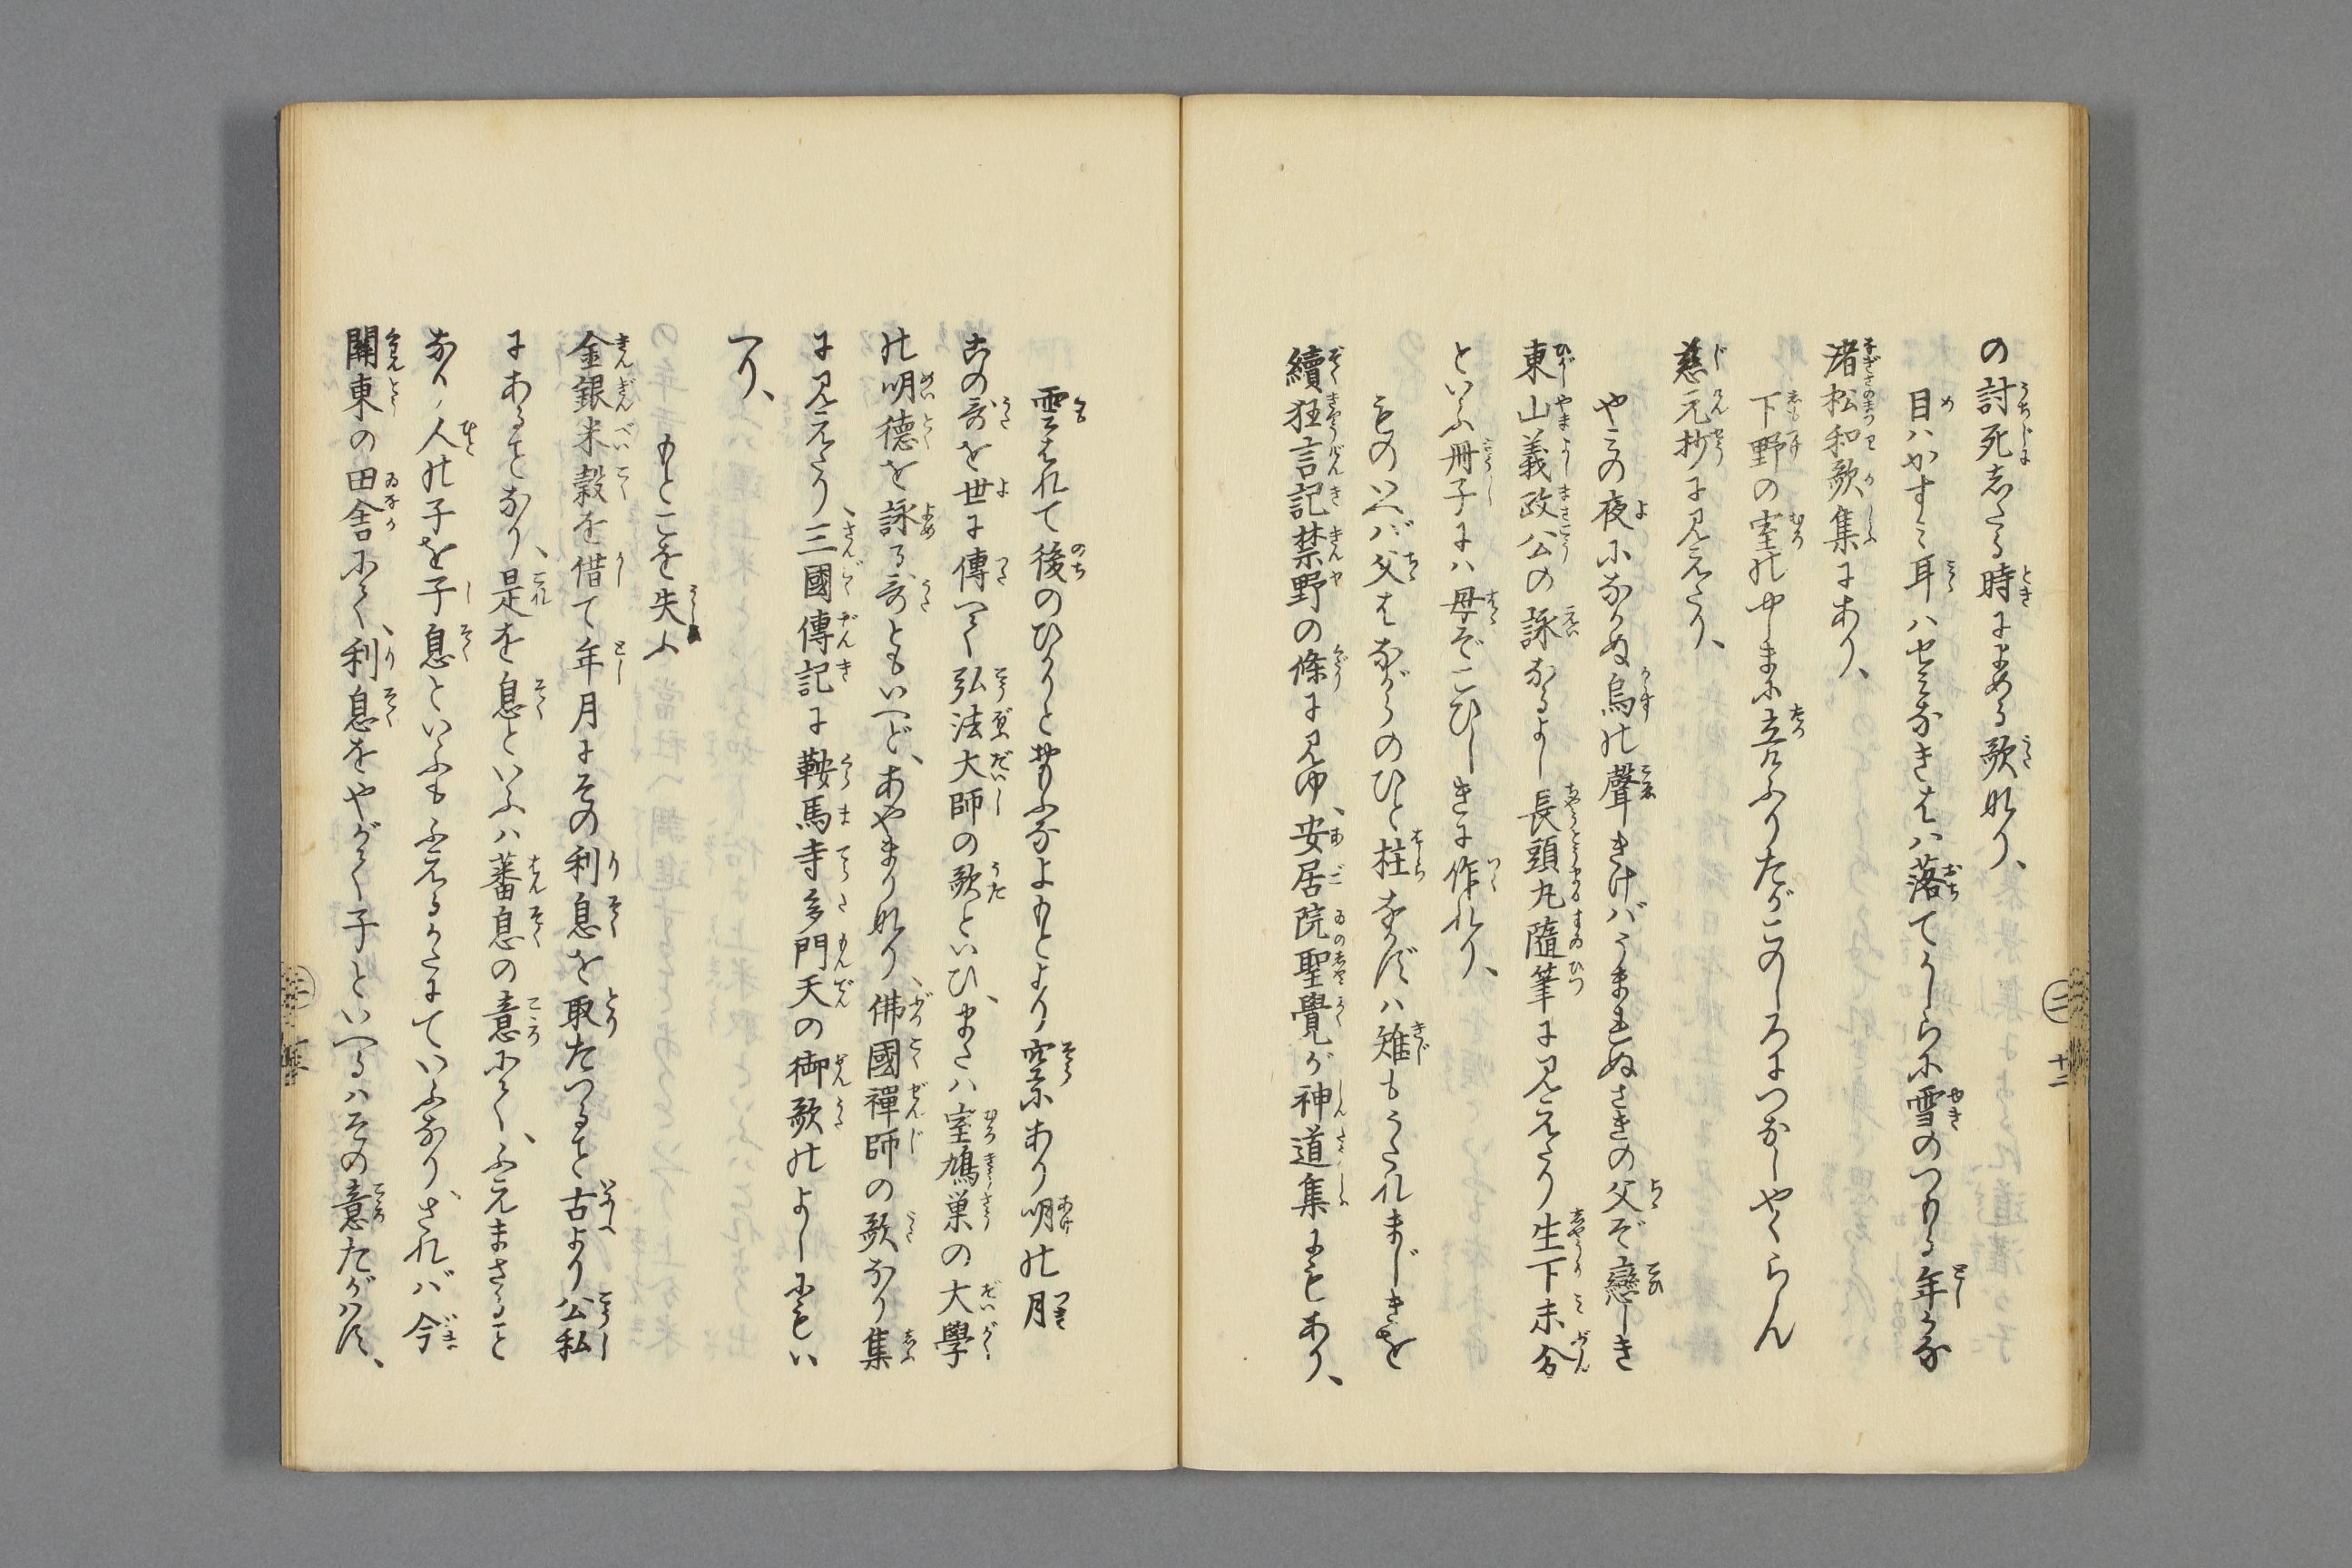 の討死したる時によめる歌なり、
目ハかすミ耳ハせミなきはハ落てかしらに雪のつもる年かな
渚松和歌集にあり、
下野の室のやまに立けふりたがこのしろにつなしやくらん
慈元抄に見えたり、
やミの夜になかぬ烏の聲きけバうまれぬさきの父ぞ戀しき
東山義政公の詠なるよし長頭丸隨筆に見えたり生下未分
といふ冊子にハ母ぞこひしきに作れり、
ものいへバ父はながらのひと柱なかずハ雉もうたれまじきを
續狂言記禁野の條に見ゆ、安居院聖覺が神道集にもあり、
雲はれて後のひかりとおもふなよもとより空にあり明の月
右の哥を世に傳へて弘法大師の歌といひ、またハ室鳩巣の大學
の明德を詠る哥ともいへど、あやまりなり、佛國禪師の歌なり集
に見えたり、三國傳記に鞍馬寺多門天の御歌のよしにもい
へり、
もとこを失ふ
金銀米穀を借て年月にその利息を取たつること古より公私
にあることなり、是を息といふハ蕃息の意にて、ふえまさること
なり、人の子を子息といふもふえるかたにていふなり、されバ今
關東の田舎にて、利息をやがて子といへるハその意たがハず、
二 十二